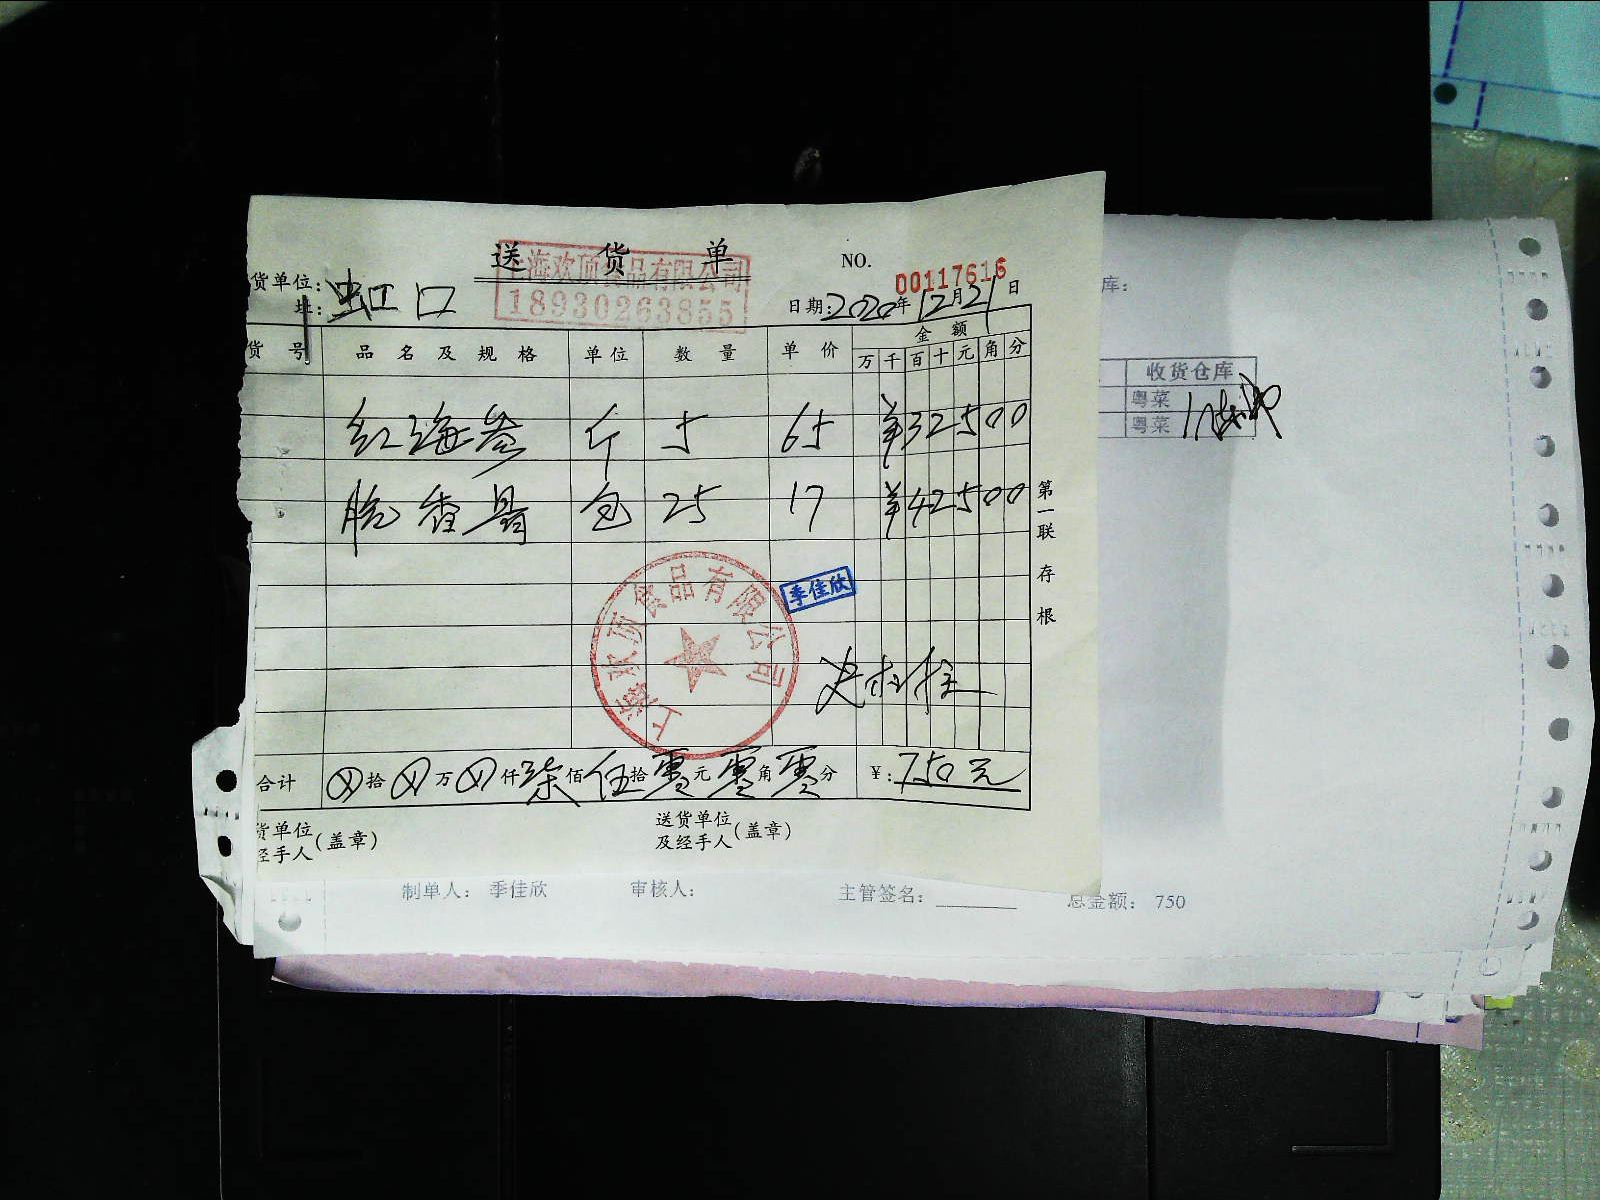 送货单
上海欢顶食品有限公司
18930263855
NO. 00117616
货单位: 虹口
址:
日期: 2020年12月21日
货号 品名及规格 单位 数量 单价 金额
万 千 百 十 元 角 分
红海参 斤 5 65 ¥32500
脆香骨 包 25 17 ¥42500
第一联 存根
上海欢顶食品有限公司
季佳欣
合计 ⊗拾⊗万⊗仟柒佰伍拾零元零角零分 ¥: 750元
货单位
经手人(盖章)
送货单位
及经手人(盖章)
库:
收货仓库
粤菜
粤菜
制单人: 季佳欣 审核人: 主管签名: 总金额: 750